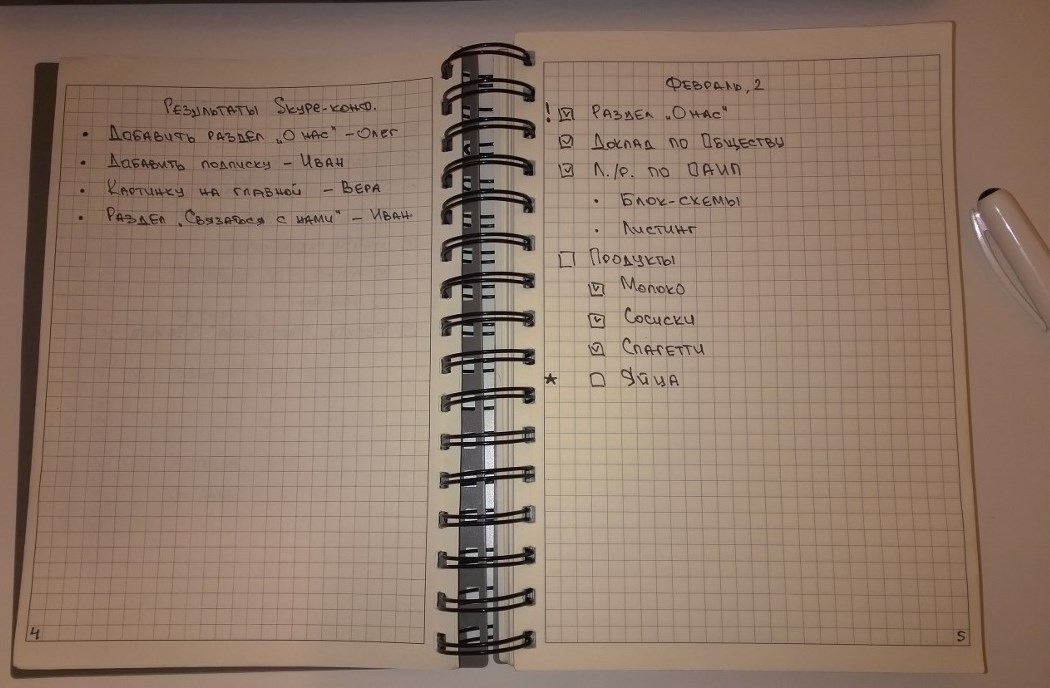 Результаты Skype-конф.
• Добавить раздел „О нас“ – Олег
• Дабавить подписку – Иван
• Картинку на главной – Вера
• Раздел „Связаться с нами“ – Иван
4
Февраль, 2
! ☑ Раздел „О нас“
☑ Доклад по Обществу
☑ Л./р. по ОАИП
• Блок-схемы
• Листинг
☐ Продукты
☑ Молоко
☑ Сосиски
☑ Спагетти
★ ☐ Яйца
5